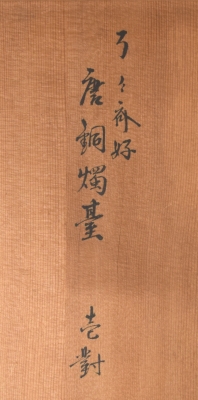 了々斎好
唐銅燭臺
壱對